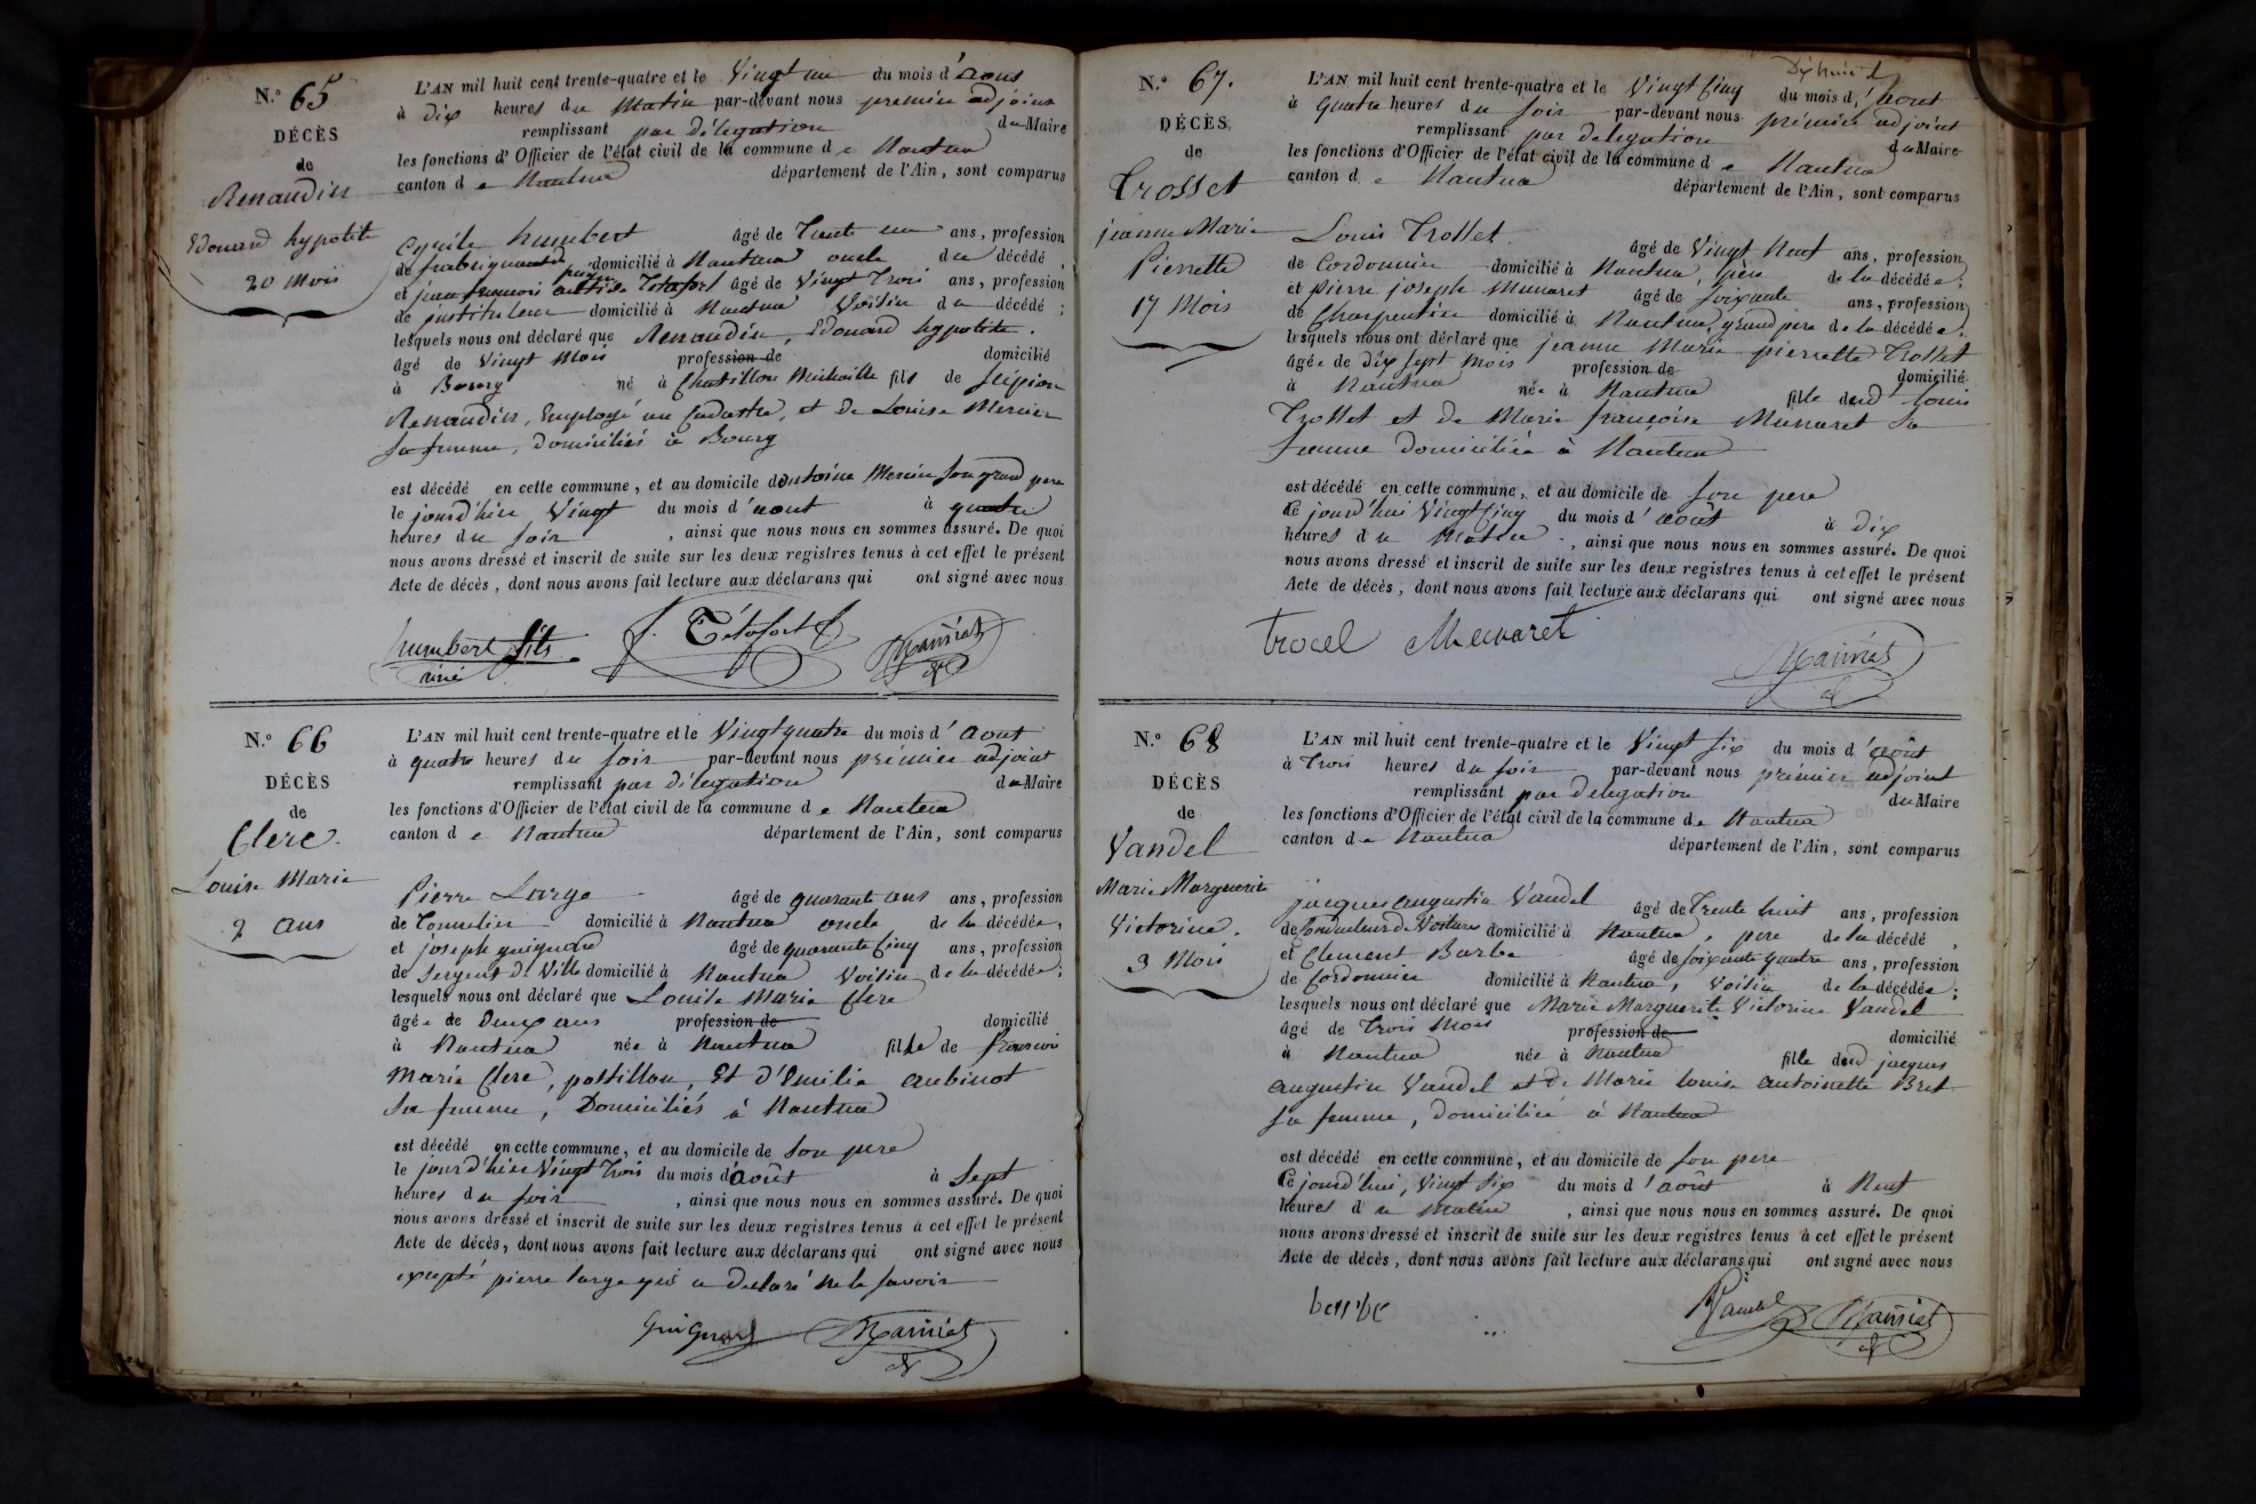 N.º 65
DÉCÈS
de
Renaudin
Edouard hypolite
20 Mois
L'AN mil huit cent trente-quatre et le Vingt un du mois d'aout
à dix heures du Matin par-devant nous premier adjoint
remplissant par délegation du Maire
les fonctions d'Officier de l'état civil de la commune de Nantua
canton de Nantua département de l'Ain, sont comparus
Cyrile humbert âgé de Trente un ans, profession
de domicilié à Nantua oncle du décédé,
et jean françois Tétafort âgé de Vingt Trois ans, profession
de instituteur domicilié à Nantua Voisin du décédé;
lesquels nous ont déclaré que Renaudin, Edouard hypolite.
âgé de Vingt Mois profession de domicilié
à Bourg né à Chatillon Michaille fils de scipion
Renaudin, Employé au Cadastre, et de Louise Mercier
sa femme, Domiciliés à Bourg
est décédé en cette commune, et au domicile d'antoine Mercier son grand pere
le jourd'hier Vingt du mois d'aout à quatre
heures du soir, ainsi que nous nous en sommes assuré. De quoi
nous avons dressé et inscrit de suite sur les deux registres tenus à cet effet le présent
Acte de décès, dont nous avons fait lecture aux déclarans qui ont signé avec nous
humbert fils
ainé
J. Tétafort
N.º 66
DÉCÈS
de
Clerc.
Louise Marie
2 ans
L'AN mil huit cent trente-quatre et le Vingt quatre du mois d'aout
à quatre heures du soir par-devant nous prémier adjoint
remplissant par délegation du Maire
les fonctions d'Officier de l'état civil de la commune de Nantua
canton de Nantua département de l'Ain, sont comparus
Pierre Large âgé de quarante ans ans, profession
de Tonnelier domicilié à Nantua oncle de la décédée,
et joseph guignard âgé de quarante Cinq ans, profession
de Sergent de Ville domicilié à Nantua Voisin de la décédée;
lesquels nous ont déclaré que Louise Marie Clerc
âgée de Deux ans profession de domicilié
à Nantua née à Nantua fille de françois
Marie Clerc, postillon, Et d'Emilie aubinot
sa femme, Domiciliés à Nantua
est décédé en cette commune, et au domicile de son pere
le jourd'hier Vingt Trois du mois d'août à Sept
heures du soir, ainsi que nous nous en sommes assuré. De quoi
nous avons dressé et inscrit de suite sur les deux registres tenus à cet effet le présent
Acte de décès, dont nous avons fait lecture aux déclarans qui ont signé avec nous
excepté pierre large qui a declaré ne le savoir
Guignard
N.º 67.
DÉCÈS
de
Trosset
jeanne Marie
Pierrette
17 Mois
L'AN mil huit cent trente-quatre et le Vingt Cinq du mois d'aout
à quatre heures du soir par-devant nous prémier adjoint
remplissant par délegation du Maire
les fonctions d'Officier de l'état civil de la commune de Nantua
canton de Nantua département de l'Ain, sont comparus
Louis Trosset âgé de Vingt Neuf ans, profession
de Cordonnier domicilié à Nantua, père de la décédée;
et Pierre joseph Munaret âgé de soixante ans, profession
de Charpentier domicilié à Nantua, grand pere de la décédée.
lesquels nous ont déclaré que jeanne Marie pierrette Trosset
âgée de Dix sept mois profession de domicilié
à Nantua née à Nantua fille dud louis
Trosset et de Marie françoise Munaret sa
femme Domiciliée à Nantua
est décédé en cette commune, et au domicile de son pere
Ce jourd'hui Vingt Cinq du mois d'août à Dix
heures du Matin, ainsi que nous nous en sommes assuré. De quoi
nous avons dressé et inscrit de suite sur les deux registres tenus à cet effet le présent
Acte de décès, dont nous avons fait lecture aux déclarans qui ont signé avec nous
trocel Munaret
N.º 68
DÉCÈS
de
Vandel
Marie Marguerite
Victorine.
3 Mois
L'AN mil huit cent trente-quatre et le Vingt six du mois d'août
à Trois heures du soir par-devant nous prémier adjoint
remplissant par délegation du Maire
les fonctions d'Officier de l'état civil de la commune de Nantua
canton de Nantua département de l'Ain, sont comparus
jacques augustin Vandel âgé de Trente huit ans, profession
de Conducteur de Voitures domicilié à Nantua, pere de la décédé,
et Clement Barbe âgé de soixante quatre ans, profession
de Cordonnier domicilié à Nantua, Voisin de la décédée;
lesquels nous ont déclaré que Marie Marguerite Victorine Vandel
âgé de Trois Mois profession de domicilié
à Nantua née à Nantua fille dud jacques
augustin Vandel et de Marie louise antoinette Bret
sa femme, domiciliée à Nantua
est décédé en cette commune, et au domicile de son pere
Ce jourd'hui, Vingt six du mois d'août à Neuf
heures du Matin, ainsi que nous nous en sommes assuré. De quoi
nous avons dressé et inscrit de suite sur les deux registres tenus à cet effet le présent
Acte de décès, dont nous avons fait lecture aux déclarans qui ont signé avec nous
Vandel